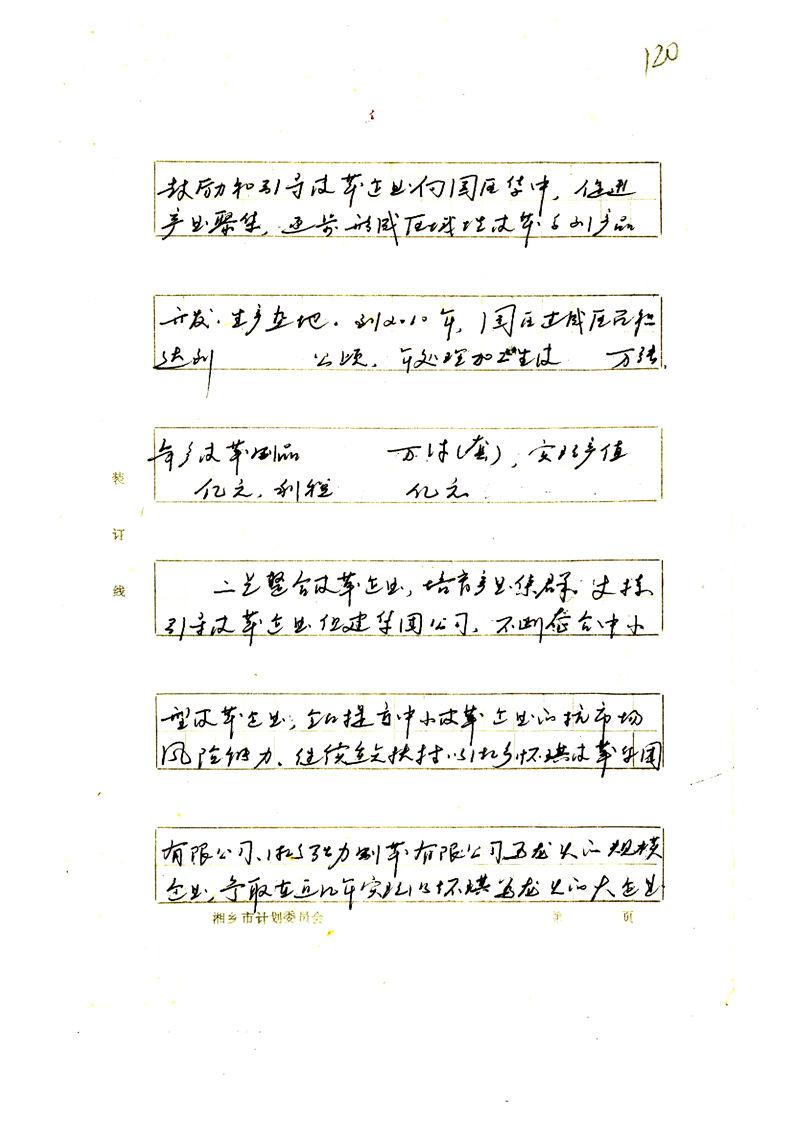 120
鼓励和引导皮革企业向园区集中，促进
产业聚集，逐步形成区域性皮革系列产品
开发、生产基地。到2010年，园区建成区面积
达到 公顷，年处理加工生皮 万张，
年产皮革制品 万件(套)，实现产值
亿元，利税 亿元。
装
订
线
二是整合皮革企业，培育产业集群。支持
引导皮革企业组建集团公司，不断整合中小
型皮革企业，全面提高中小皮革企业的抗市场
风险能力。继续重点扶持以湘乡怀其皮革集团
有限公司、湘乡强力制革有限公司为龙头的规模
企业，争取在近几年实现以怀其为龙头的大企业
湘乡市计划委员会 第 页